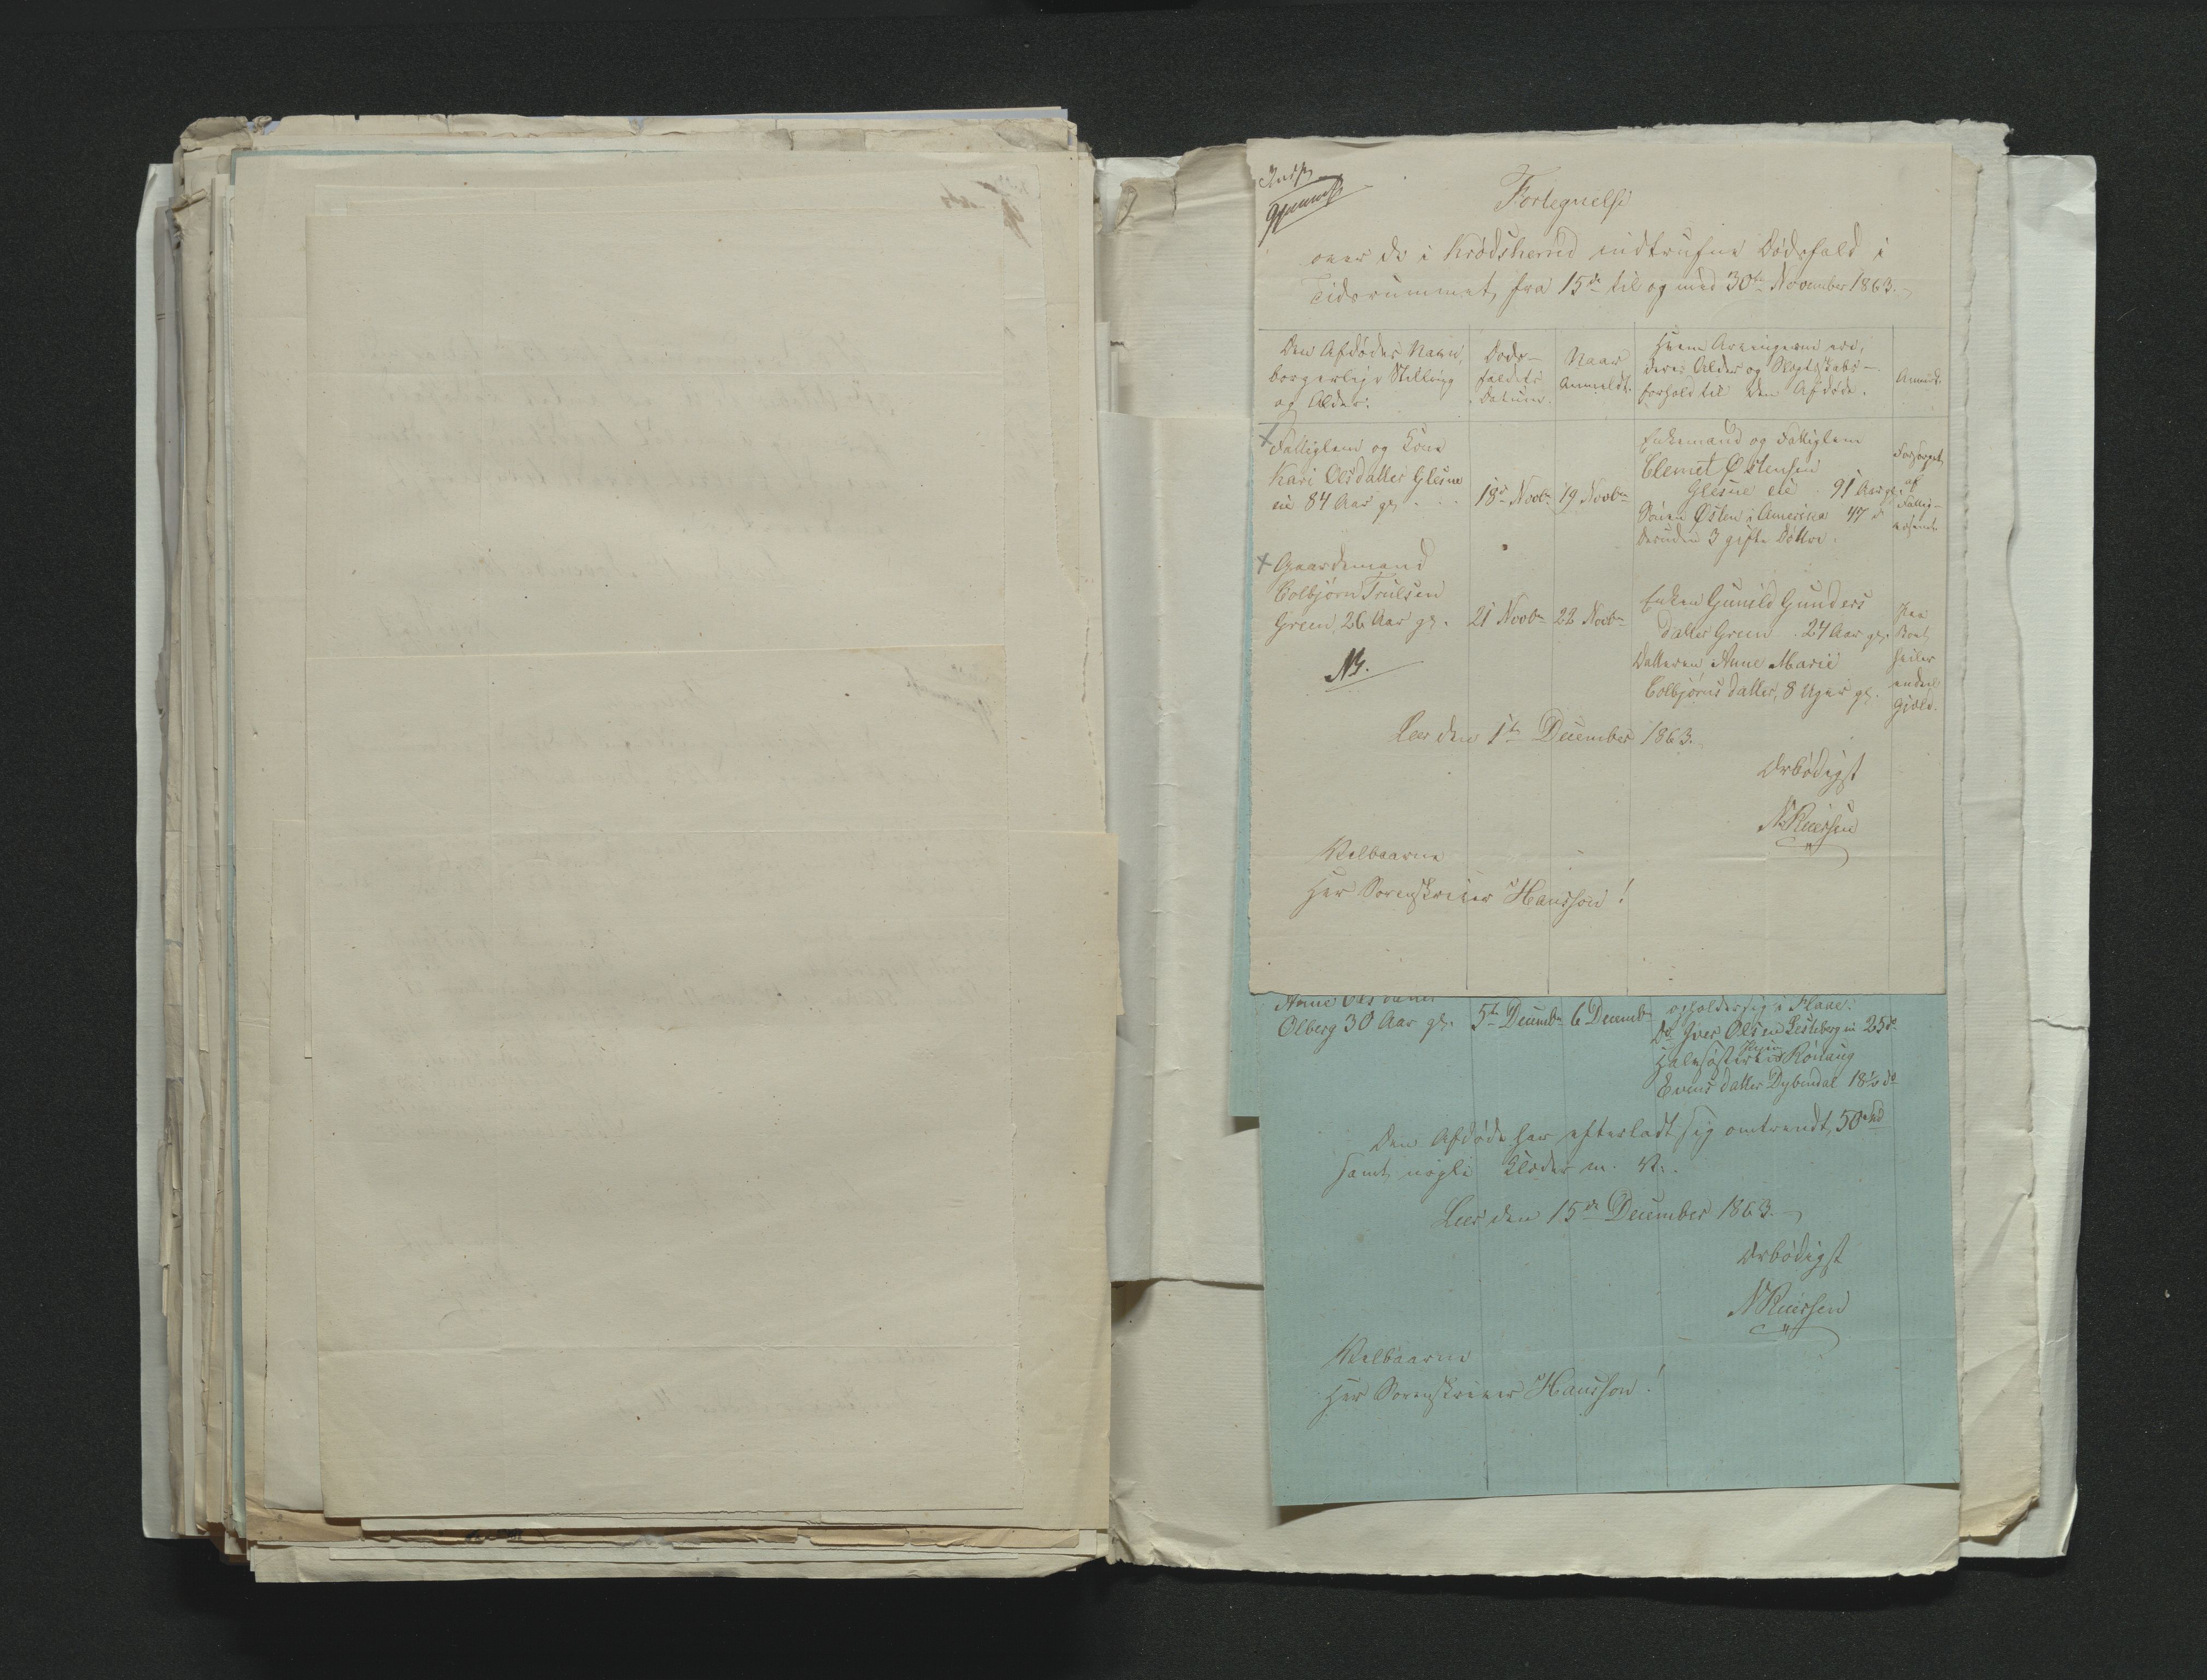 Fortegnelse
over de i Krødsherred indtrufne Dødsfald i
Tidsrummet, fra 15de til og med 30te November 1863.
Den Afdødes Navn,
borgerlige Stilling
og Alder.
Døds-
faldets
Datum.
Naar
Anmeldt.
Hvem Arvingerne ere,
deres Alder og Slægtskabs-
forhold til den Afdøde.
Anmk.
Fattiglem og Kone
Kari Olsdatter Glesne
eie 84 Aar gl.
18de Novbr
19 Novbr
Enkemand og Fattiglem
Clemet Østensen
Glesne eie 91 Aar gl.
Sønen Østen i Amerika 47 d
desuden 3 gifte Døttre.
Forsørget
af
Fattig-
væsenet.
Gaardmand
Colbjørn Trulsen
Green, 26 Aar gl.
21 Novbr
22 Novbr
Enken Gunild Gunders
datter Green 24 Aar gl.
Datteren Anne Marie
Colbjørns datter, 8 Uger gl.
Paa
Boet
hviler
endeel
Gjæld.
NB.
Leer den 1te December 1863.
Ærbødigst
N Ruersen
Velbaarne
Hr Sorenskriver Hansson!
Anne Olsdatter
Olberg 30 Aar gl.
5te Decembr
6 Decembr
opholder sig i Flaae.
Do Iver Olsen Lesteberg ei 25 d
Halvsøsteren Rønaug
Evensdatter Dybendal 18½ do
Den Afdøde har efterladt sig omtrendt, 50 Spd
samt nogle Klæder m. V.
Leer den 15de December 1863.
Ærbødigst
N Ruersen
Velbaarne
Hr Sorenskriver Hansson!